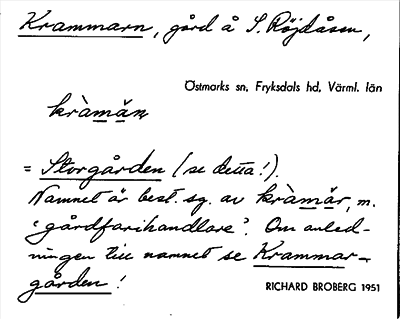 Krammarn, gård å S. Röjdåsen,
Östmarks sn, Fryksdals hd, Värml. län
kràmän
= Storgården (se detta!).
Namnet är best. sg. av kràmär, m.
'gårdfarihandlare'. Om anled-
ningen till namnet se Krammar-
gården!
RICHARD BROBERG 1951